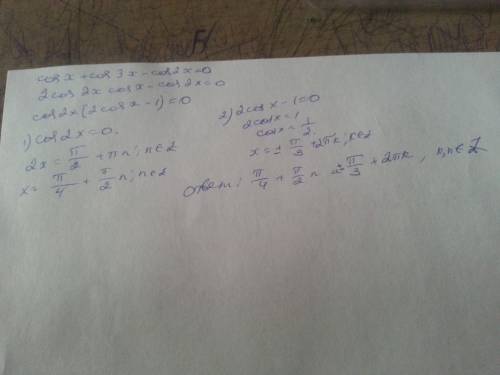 cos x + cos 3x - cos 2x = 0
2 cos 2x cos x - cos 2x = 0
cos 2x (2 cos x - 1) = 0
1) cos 2x = 0.
2x = π/2 + πn; n∈Z
x = π/4 + π/2 n; n∈Z
2) 2 cos x - 1 = 0
2 cos x = 1
cos x = 1/2.
x = ± π/3 + 2πk; k∈Z
ответ: π/4 + π/2 n ± π/3 + 2πk, k,n∈Z